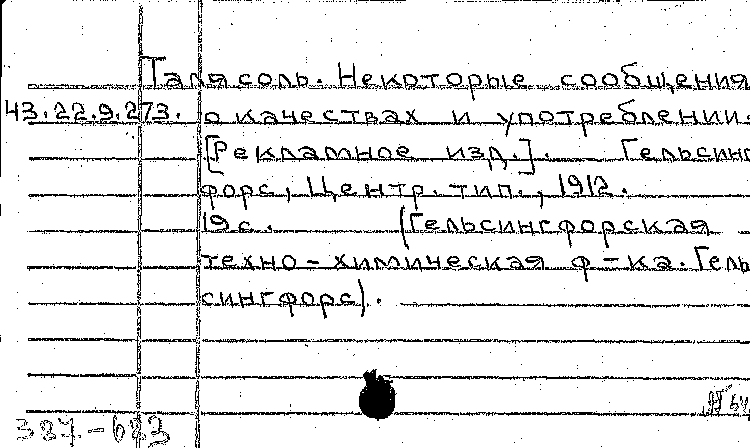 Талясоль. Некоторые сообщения
43.22.9.273. о качествах и употреблении.
[Рекламное изд.]. Гельсинг
форс, Центр. тип., 1912.
19 с. (Гельсингфорская
техно-химическая ф-ка. Гель
сингфорс).
387.-683